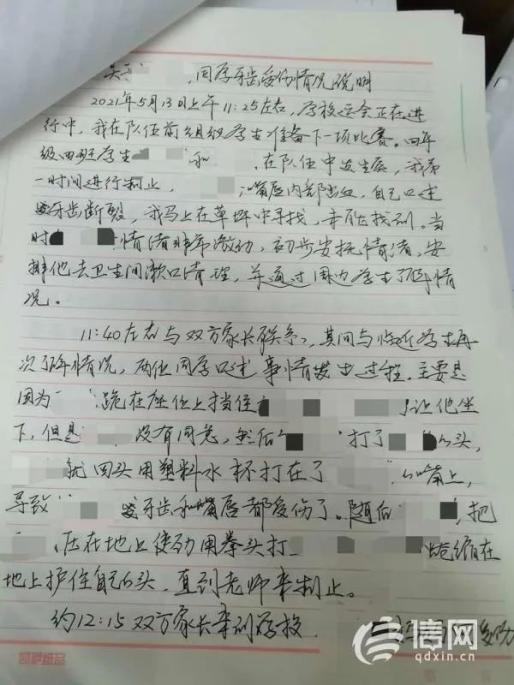 关于 同学牙齿受伤情况说明
2021年5月13日上午11:25左右，学校运会正在进
行中，我在队伍前组织学生准备下一项比赛。四年
级四班学生 和 在队伍中发生 ，我第
一时间进行制止， 嘴唇内部出血，自己口述
牙齿断裂，我马上在草坪中寻找，未能找到。当
时 情绪非常激动，初步安抚情绪，安
排他去卫生间漱口清理，并通过周边学生了解情
况。
11:40左右与双方家长联系，其间与临近学生再
次了解情况，两位同学口述事情发生过程。主要是
因为 跪在座位上挡住 让他坐
下，但是 没有同意，然后 打了 的头，
就回头用塑料水杯打在了 的嘴上，
导致 牙齿和嘴唇都受伤了。随后 ，把
压在地上使劲用拳头打 蜷缩在
地上护住自己的头，直到老师来制止。
约12:15双方家长来到学校
信网
qdxin.cn